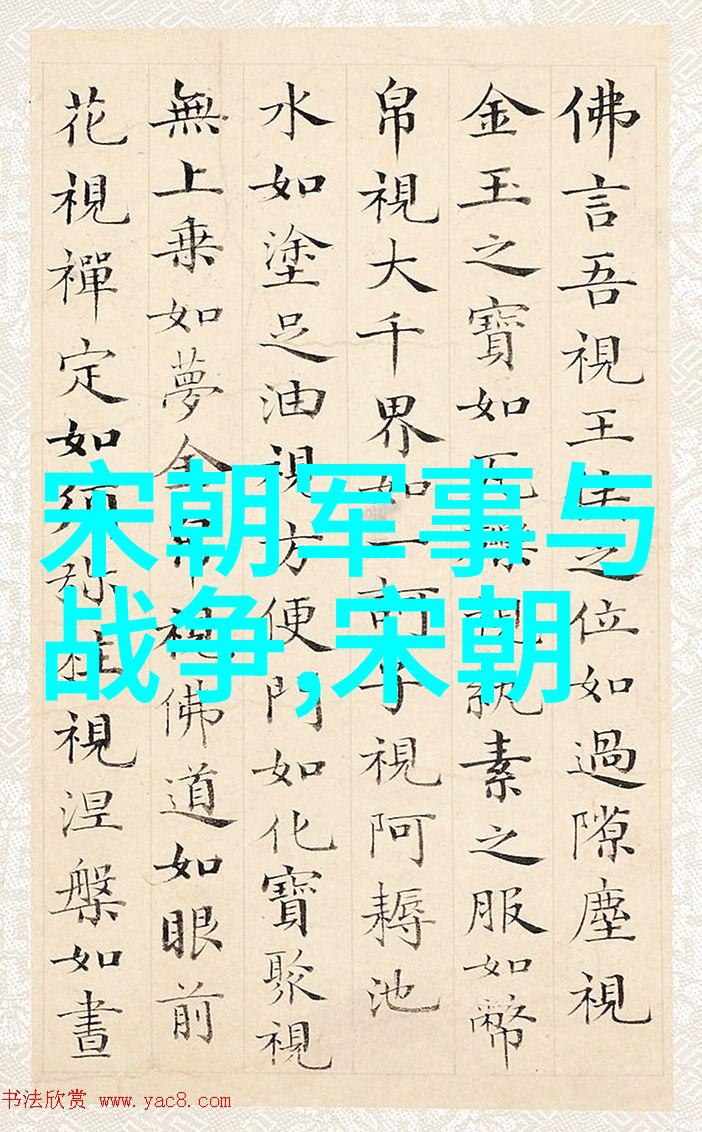 佛言吾視王之位如過隙塵視
金玉之寶如瓦礫視紈素之服如幣
帛視大千界如一訶子視阿耨池
水如塗足油視方便門如化寶聚視
無上乗如夢金帛視佛道如眼前
花視禪定如須弥柱視涅槃如晝
宋朝军事与
战争,宋朝
书法欣赏 www.yac8.com